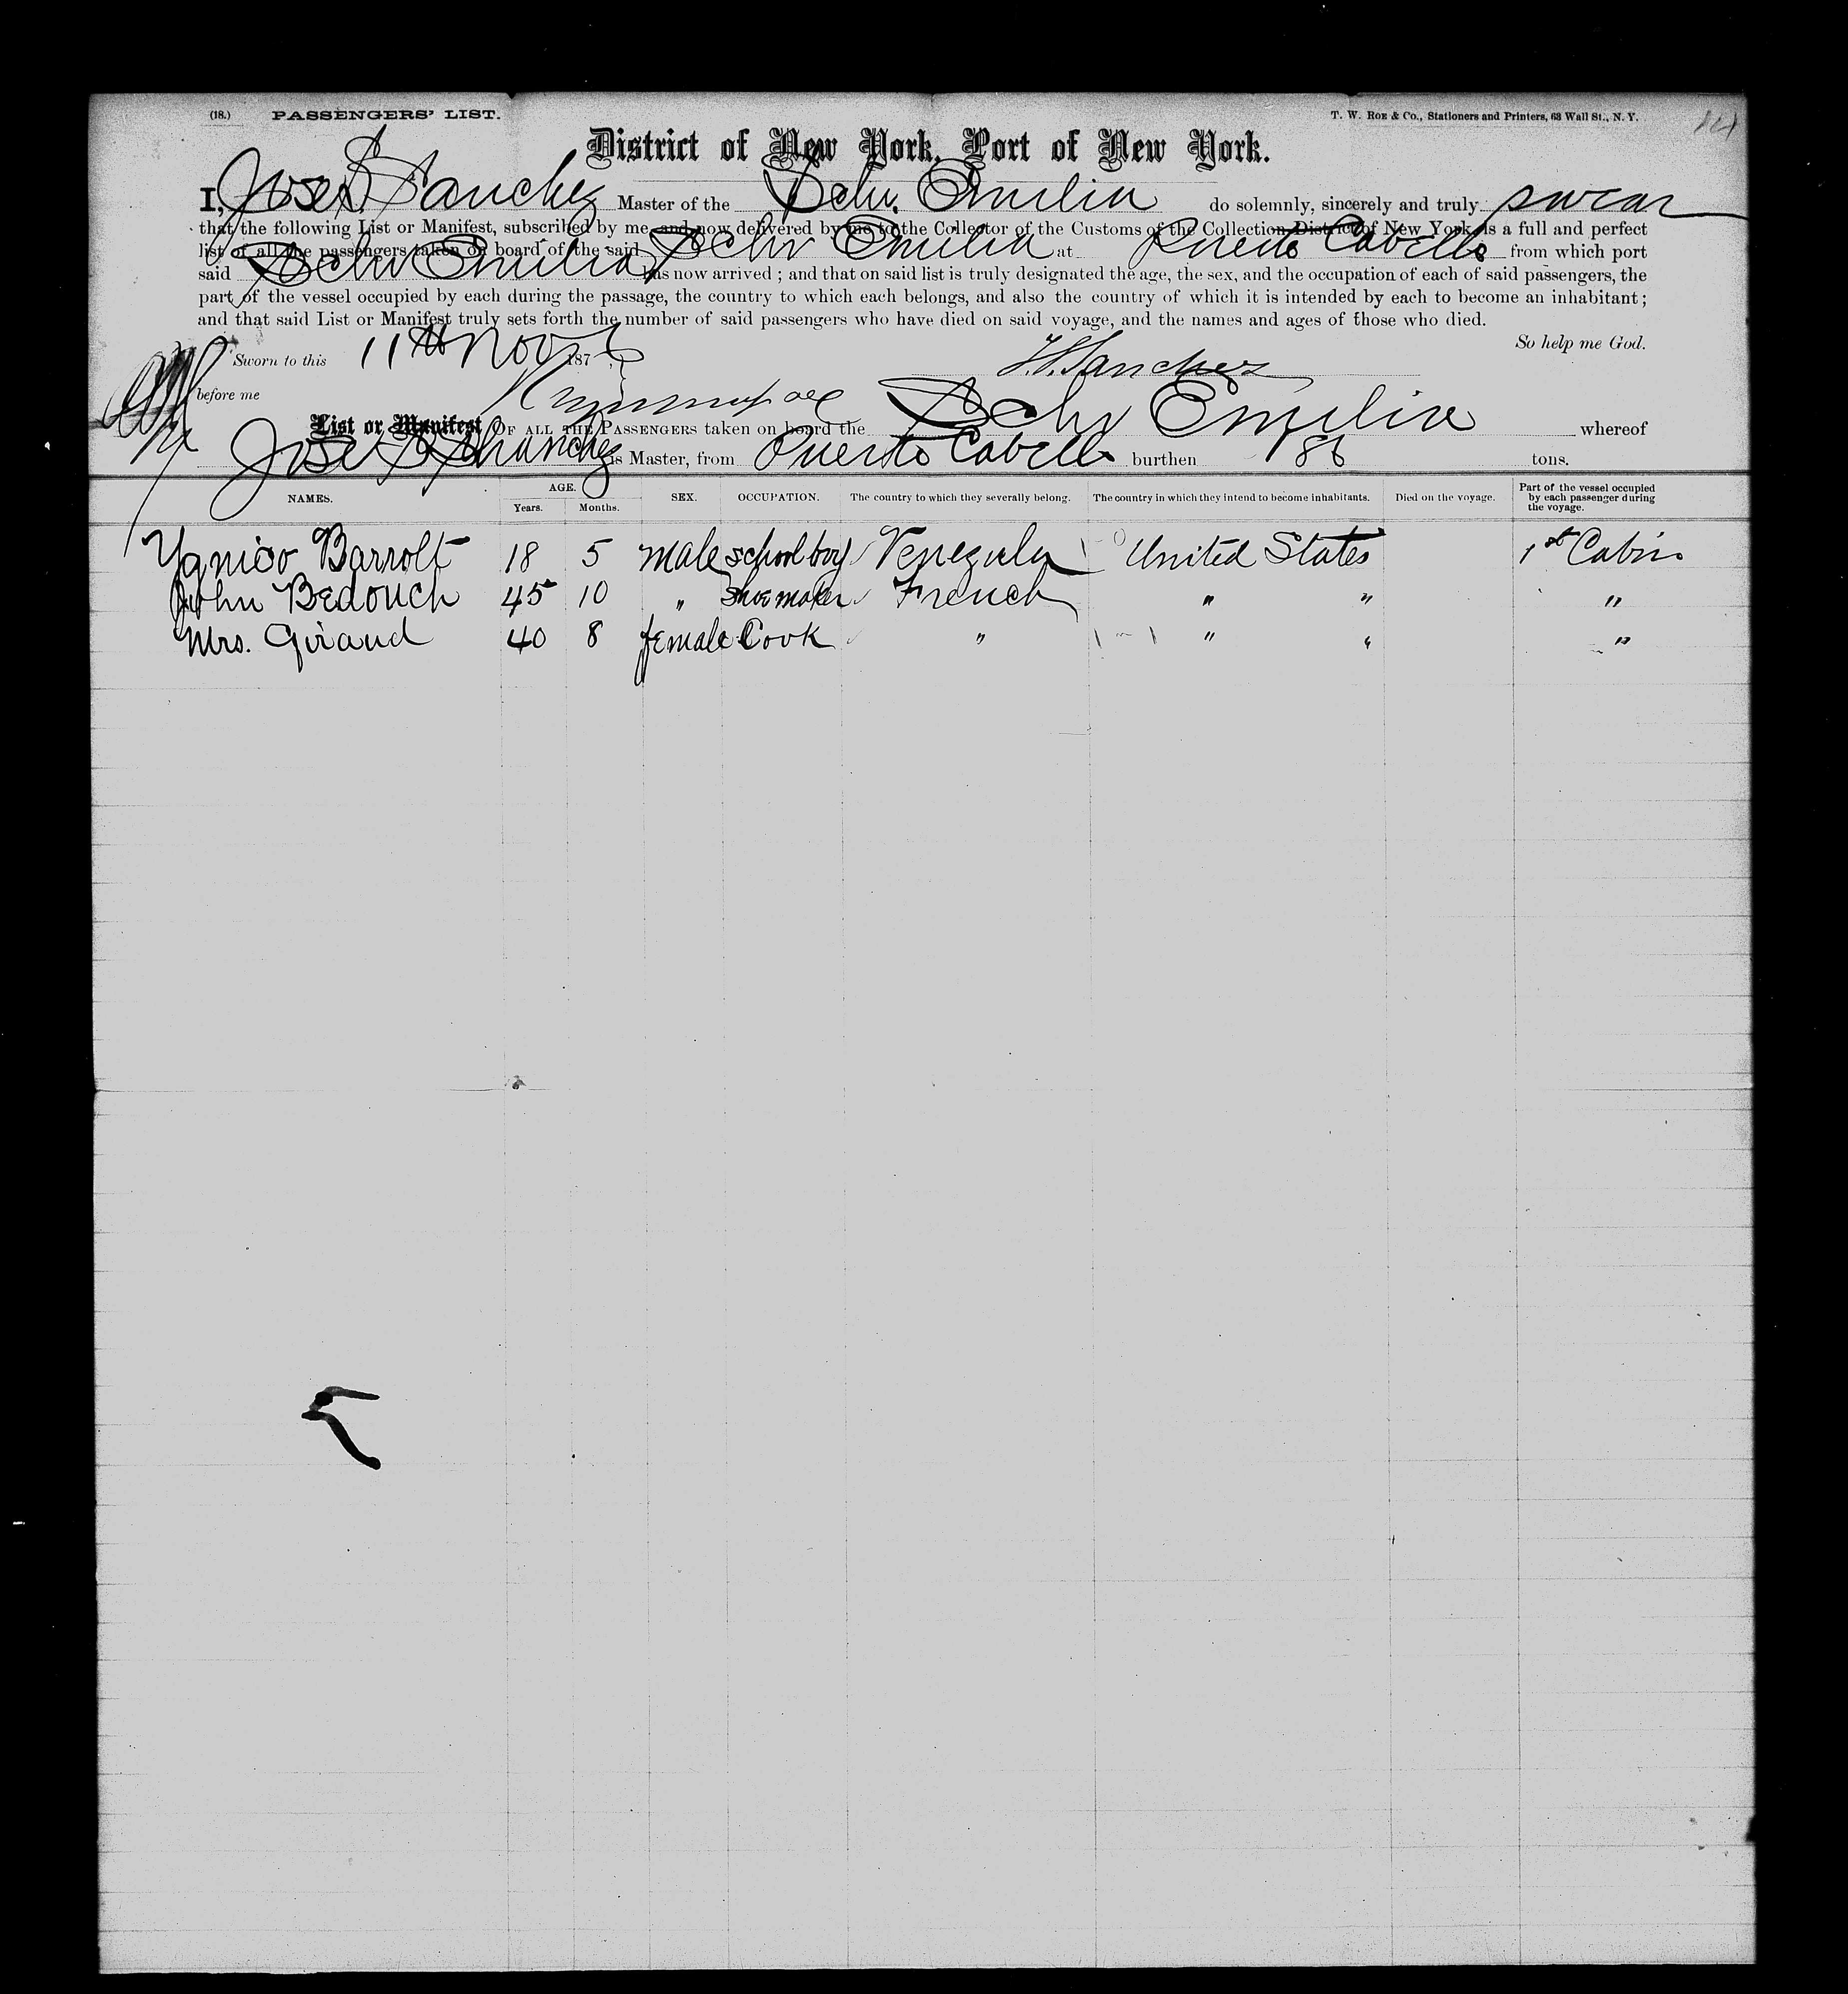 (18.) PASSENGERS' LIST. T. W. ROE & CO., Stationers and Printers, 63 Wall St., N. Y.
District of New York, Port of New York.
I, Jose S Sanchez Master of the Schr. Emilia do solemnly, sincerely and truly swear
that the following List or Manifest, subscribed by me and now delivered by me to the Collector of the Customs of the Collection District of New York, is a full and perfect
list of all the passengers taken on board of the said Schr Emilia at Puerto Cabello from which port
said Schr Emilia has now arrived ; and that on said list is truly designated the age, the sex, and the occupation of each of said passengers, the
part of the vessel occupied by each during the passage, the country to which each belongs, and also the country of which it is intended by each to become an inhabitant ;
and that said List or Manifest truly sets forth the number of said passengers who have died on said voyage, and the names and ages of those who died.
So help me God.
Sworn to this 11th Nov 187
J. S. Sanchez
before me
List or Manifest OF ALL THE PASSENGERS taken on board the Schr Emilia whereof
Jose S Shanchez is Master, from Puerto Cabello burthen 186 tons.
NAMES. AGE. Years. Months. SEX. OCCUPATION. The country to which they severally belong. The country in which they intend to become inhabitants. Died on the voyage. Part of the vessel occupied by each passenger during the voyage.
Ygnico Barrolt 18 5 male school boy Venezula United States 1st Cabin
John Bedouch 45 10 " Shoemaker French " " "
Mrs. Giraud 40 8 female Cook " " " "